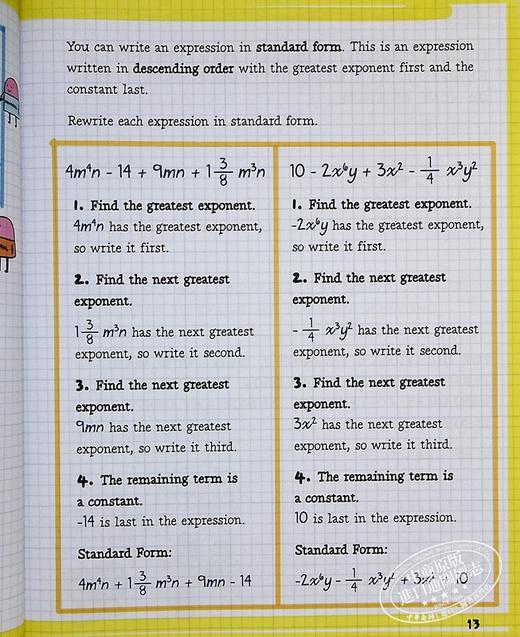 You can write an expression in standard form. This is an expression
written in descending order with the greatest exponent first and the
constant last.
Rewrite each expression in standard form.
4m⁴n - 14 + 9mn + 1 3/8 m³n
1. Find the greatest exponent.
4m⁴n has the greatest exponent,
so write it first.
2. Find the next greatest
exponent.
1 3/8 m³n has the next greatest
exponent, so write it second.
3. Find the next greatest
exponent.
9mn has the next greatest
exponent, so write it third.
4. The remaining term is
a constant.
-14 is last in the expression.
Standard Form:
4m⁴n + 1 3/8 m³n + 9mn - 14
10 - 2x⁶y + 3x² - 1/4 x³y²
1. Find the greatest exponent.
-2x⁶y has the greatest exponent,
so write it first.
2. Find the next greatest
exponent.
- 1/4 x³y² has the next greatest
exponent, so write it second.
3. Find the next greatest
exponent.
3x² has the next greatest
exponent, so write it third.
4. The remaining term is
a constant.
10 is last in the expression.
Standard Form:
-2x⁶y - 1/4 x³y² + 3x² + 10
13